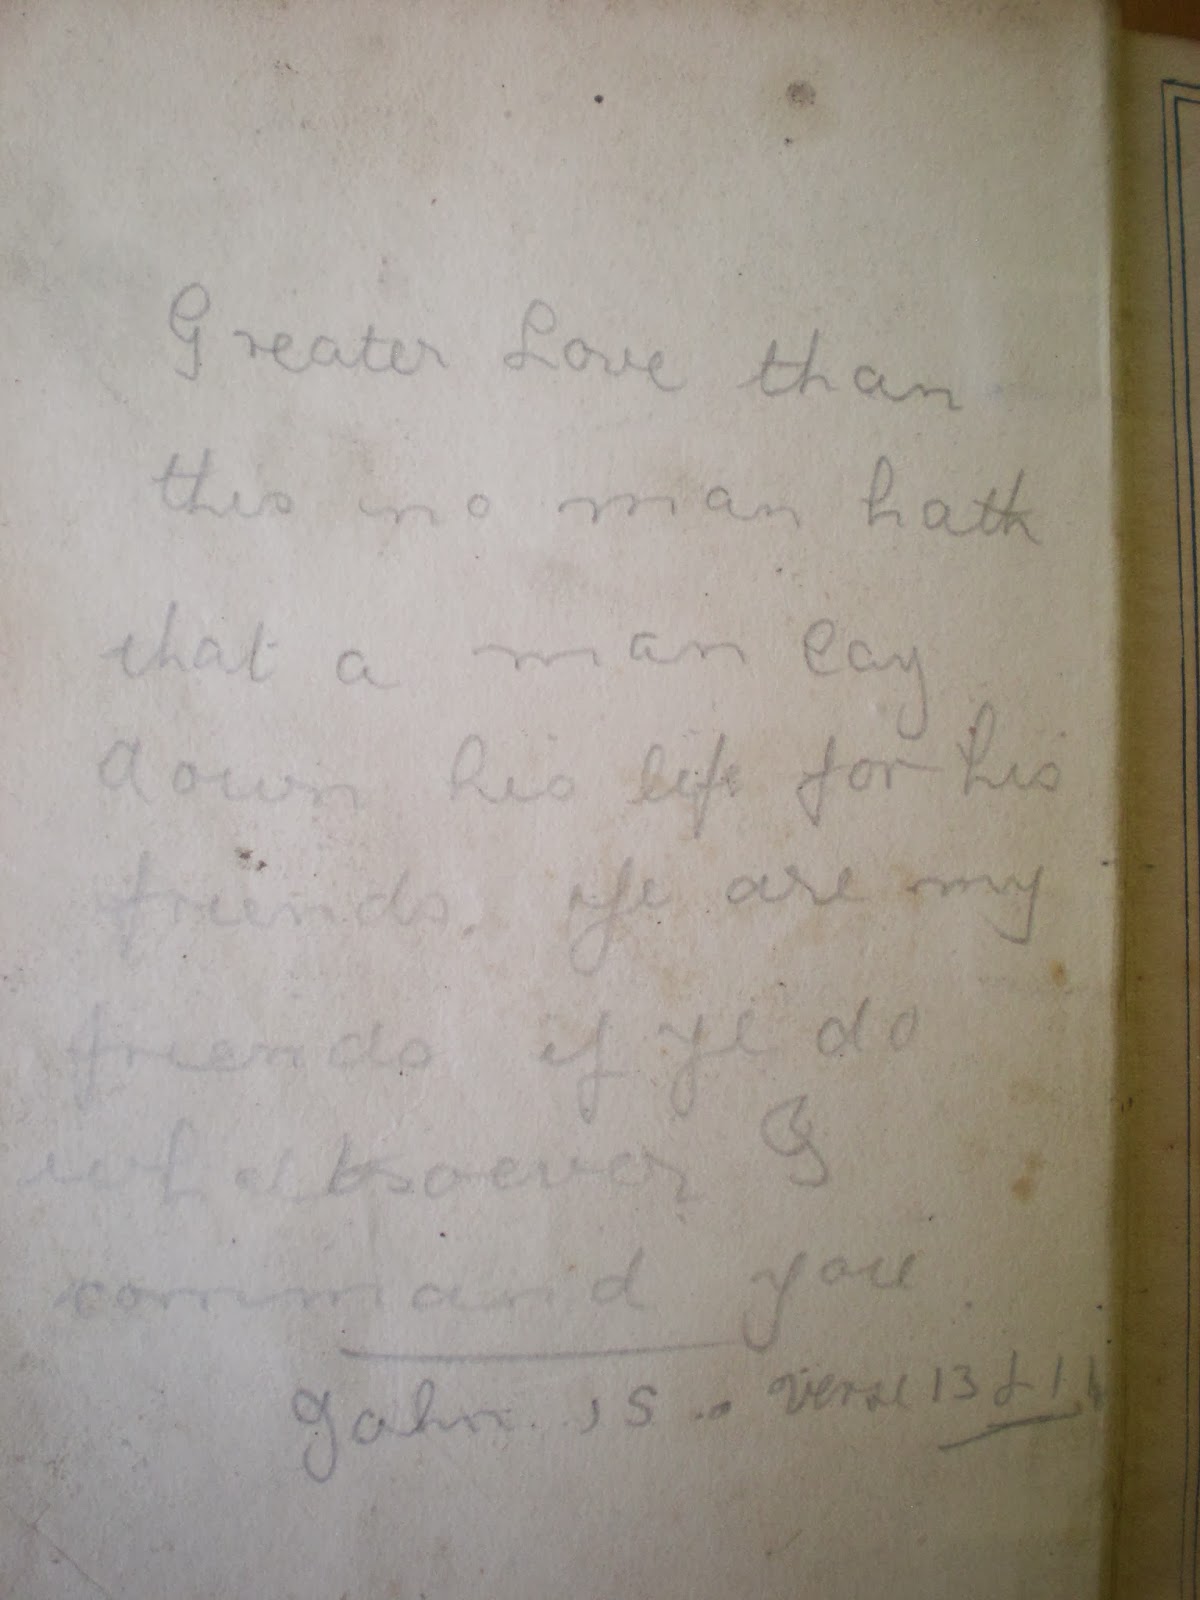 Greater Love than
this no man hath
that a man lay
down his life for his
friends. Ye are my
friends if ye do
whatsoever I
command you
John. 15. verse 13 & 14